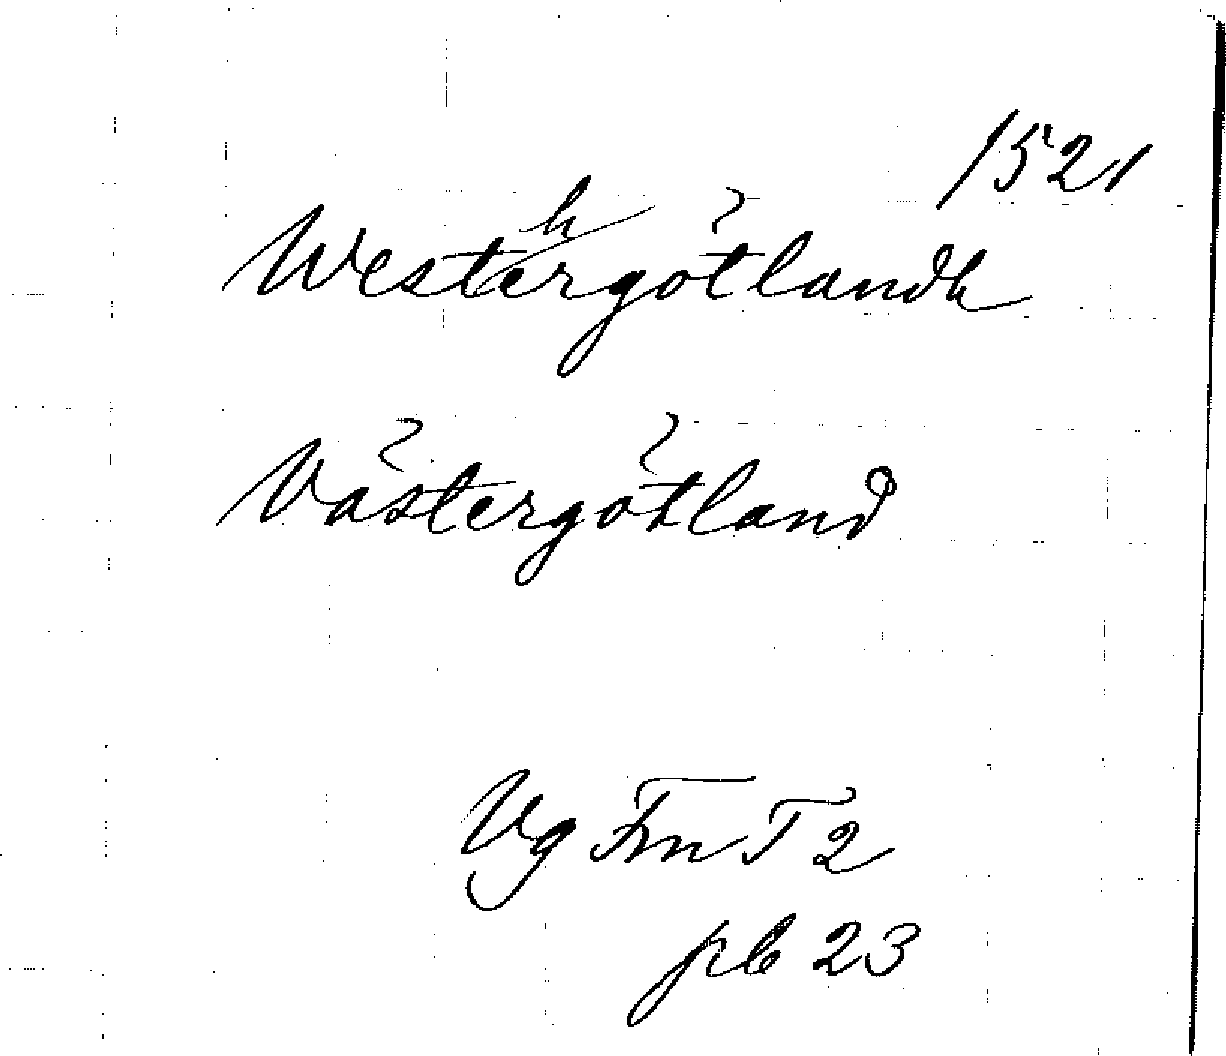 1521
Westhergötlandh
Västergötland
Vg Fm T 2
pb 23